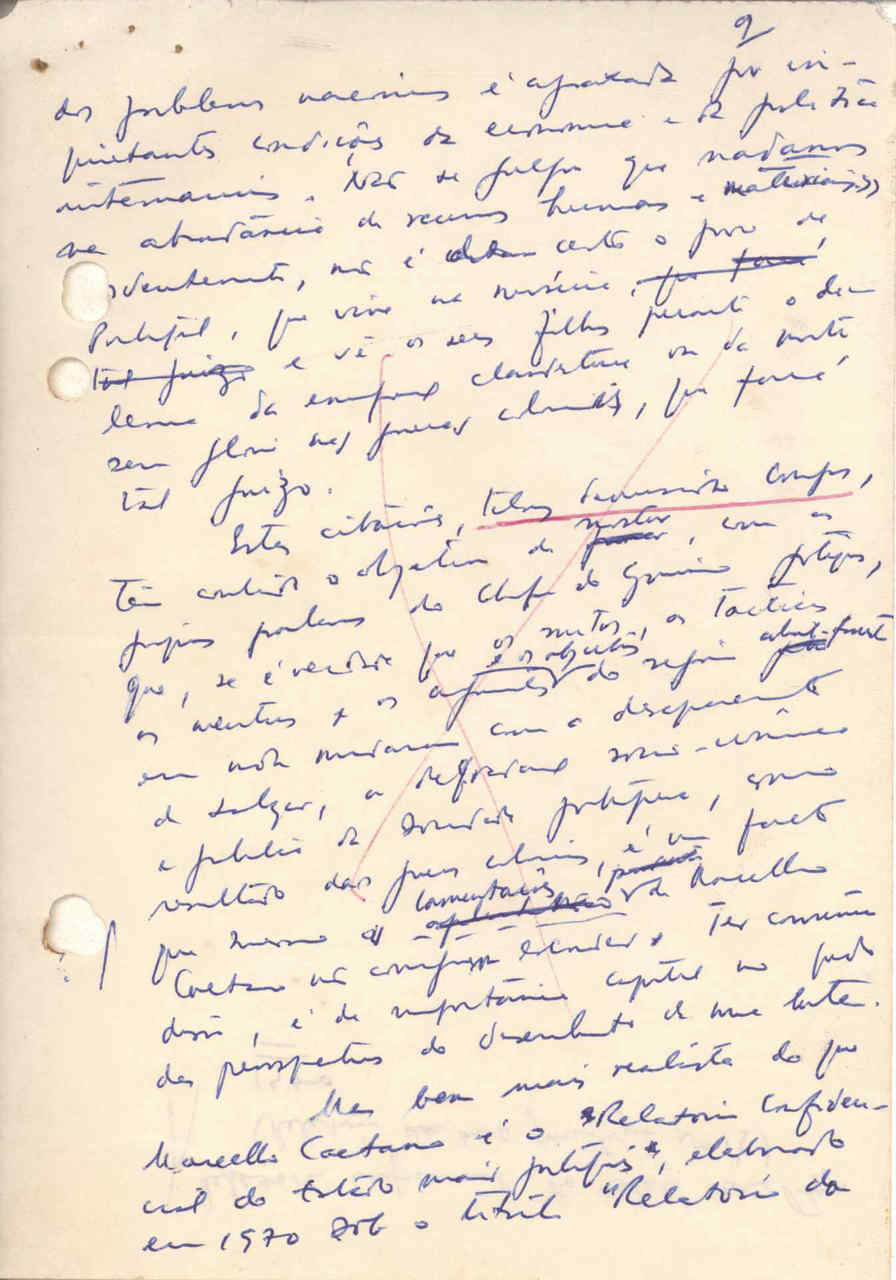 9
dos problemas nacionais é agravada por im-
portantes condições da economia e da política
internacionais. Não se julgue que nadamos
na abundância de recursos humanos e materiais».
Evidentemente, não é certo o povo de
Portugal, que vive na miséria, que fará
tal juizo e vê os seus filhos perante o di-
lema da emigração clandestina ou da morte
sem glória nas guerras coloniais, que fará
tal juizo.
Estas citações, talvez demasiado longas,
têm contudo o objectivo de mostrar, com as
próprias palavras do Chefe do Governo português,
que, se é verdade que os métodos, os tácticas
e os objectivos
os e os do regime
em nada mudaram com o desaparecimento
de Salazar, a degradação sócio-económica
e política da sociedade portuguesa, como
resultado das guerras coloniais, é um facto
que mesmo as lamentações de Marcello
Caetano não conseguem esconder. Ter consciência
disso, é de importância capital no quadro
das perspectivas do desenvolvimento de uma luta.
Mas bem mais realista do que
Marcello Caetano é o "Relatório Confiden-
cial do Estado maior português", elaborado
em 1970 sob o título "Relatório da